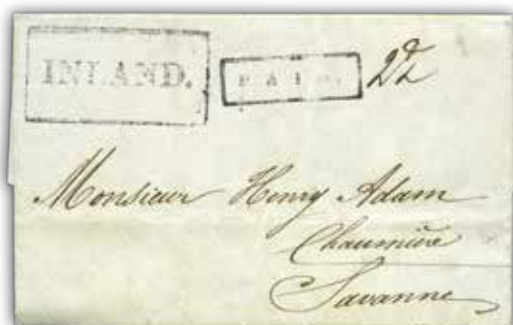 INLAND. PAID. 2d
Monsieur Henry Adam
Chaumière
Savanne